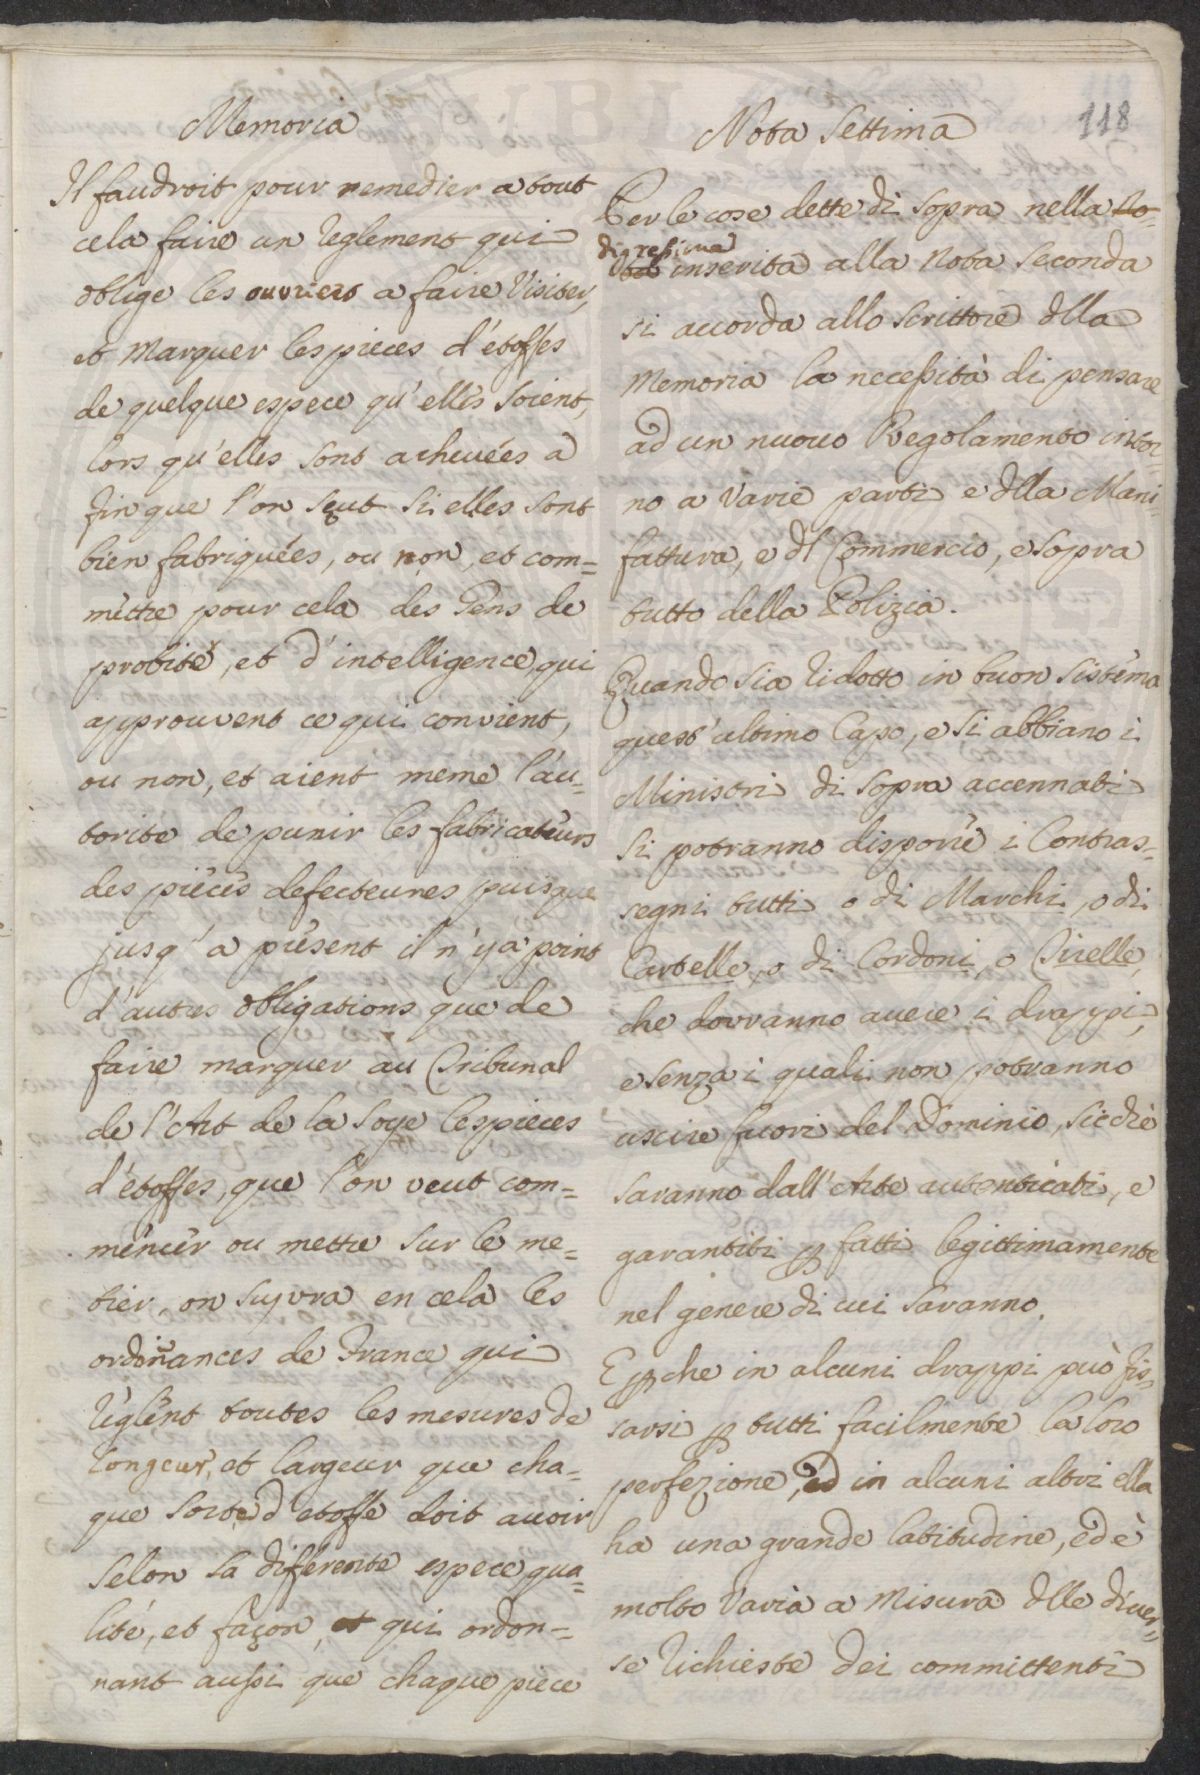 118
Memoria
Il faudroit pour remedier a tout
cela faire un reglement qui
oblige les ouvriers a faire visiter,
et marquer les pieces d'étoffes
de quelque espece qu'elles soient,
lors qu'elles sont achevées a
fin que l'on sçut si elles sont
bien fabriquées, ou non, et com=
mettre pour cela des Gens de
probité, et d'intelligence, qui
approuvent ce qui convient,
ou non, et aient meme l'au=
torite de punir les fabricateurs
des pièces defecteuses puisque
jusq'a present il n'y a point
d'autres obligations que de
faire marquer au Tribunal
de l'Art de la Soye les pieces
d'étoffes, que l'on veut com=
mencer ou mettre sur le me=
tier, on suyvra en cela les
ordinances de France qui
règlent toutes les mesures de
longeur, et largeur que cha=
que sorte d etoffe doit avoir
selon sa differente espece qua=
lité, et façon, et qui ordon=
nant aussi que chaque piece
Nota Settima
Per le cose dette di sopra nella No=
ta digressiva inserita alla Nota Seconda
si accorda allo scrittore dlla
Memoria la necessità di pensare
ad un nuovo Regolamento intor=
no a varie parti e dlla Mani=
fattura, e dl Commercio, e sopra
tutto della Polizia.
Quando sia ridotto in buon sistema
quest'ultimo Capo, e si abbiano i
Ministri di sopra accennati
si potranno disporre i Contras=
segni tutti o di Marchi, o di
Cartelle, o di Cordoni, o Cirelle,
che dovranno avere i drappi,
e senza i quali non potranno
uscire fuori del Dominio, sicchè
saranno dall'Arte autenticati, e
garantiti p fatti legittimamente
nel genere di cui saranno.
E pche in alcuni drappi può fis=
sarsi p tutti facilmente la loro
perfezione, ed in alcuni altri ella
ha una grande latitudine, ed è
molto varia a misura dlle diver=
se richieste dei committenti